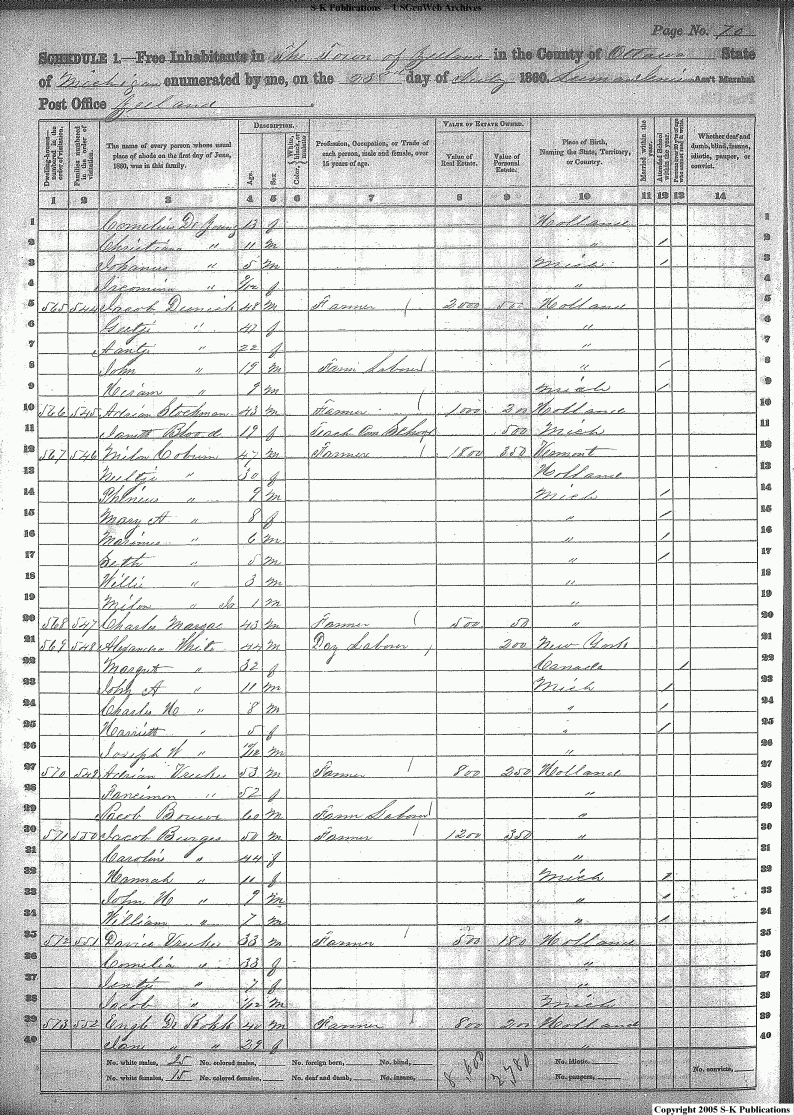 S-K Publications – USGenWeb Archives
Page No. 70
SCHEDULE 1.—Free Inhabitants in The Town of Zeeland in the County of Ottawa State
of Michigan enumerated by me, on the 28th day of July 1860. Ass't Marshal
Post Office Zeeland
Dwelling-houses numbered in the order of visitation.
Families numbered in the order of visitation.
The name of every person whose usual place of abode on the first day of June, 1860, was in this family.
DESCRIPTION.
Age.
Sex
Color, White, black, or mulatto
Profession, Occupation, or Trade of each person, male and female, over 15 years of age.
VALUE OF ESTATE OWNED.
Value of Real Estate.
Value of Personal Estate.
Place of Birth, Naming the State, Territory, or Country.
Married within the year.
Attended School within the year.
Whether deaf and dumb, blind, insane, idiotic, pauper, or convict.
1 2 3 4 5 6 7 8 9 10 11 12 13 14
1 Cornelius De Young 13 f Holland 1
2 Christian " 11 m " / 2
3 Johanus " 5 m Mich / 3
4 " 9/12 f " 4
5 565 544 Jacob 48 m Farmer 2000 500 Holland 5
6 Geertje " 42 f " 6
7 Aantji " 22 f " 7
8 John " 19 m Farm Labour " / 8
9 Hiram " 9 m Mich / 9
10 566 545 Adrian Stockman 43 m Farmer 1000 200 Holland 10
11 Janett Blood 19 f Teach Com School 500 Mich 11
12 567 546 Milon Coburn 47 m Farmer 1800 350 Vermont 12
13 Neeltji " 30 f Holland 13
14 Phineus " 9 m Mich / 14
15 Mary A " 8 f " / 15
16 " 6 m " / 16
17 Seth " 5 m " / 17
18 Willie " 3 m " 18
19 Milon " Jr 1 m " 19
20 568 547 Charles 43 m Farmer 500 50 " 20
21 569 548 Alexander White 44 m Day Labour 200 New York 21
22 Margret " 32 f Canada / 22
23 John A " 11 m Mich / 23
24 Charles H " 8 m " / 24
25 Harriett " 5 f " / 25
26 Joseph W " m " 26
27 570 549 Adrian 53 m Farmer 800 250 Holland 27
28 " 52 f " 28
29 Jacob 60 m Farm Labour " 29
30 571 550 Jacob Burges 50 m Farmer 1200 350 " 30
31 Caroline " 44 f " 31
32 Hannah " 11 f Mich / 32
33 John H " 9 m " / 33
34 William " 7 m " / 34
35 572 551 David 33 m Farmer 500 180 Holland 35
36 Cornelia " 33 f " 36
37 Jentji " 7 f " 37
38 Jacob " m Mich 38
39 573 552 Engb De Kokk 40 m Farmer 800 200 Holland 39
40 Jan " 29 f " 40
No. white males, 25 No. colored males, No. foreign born, No. blind, 8,600 2,780 No. idiotic,
No. white females, 15 No. colored females, No. deaf and dumb, No. insane, No. paupers, No. convicts,
Copyright 2005 S-K Publications